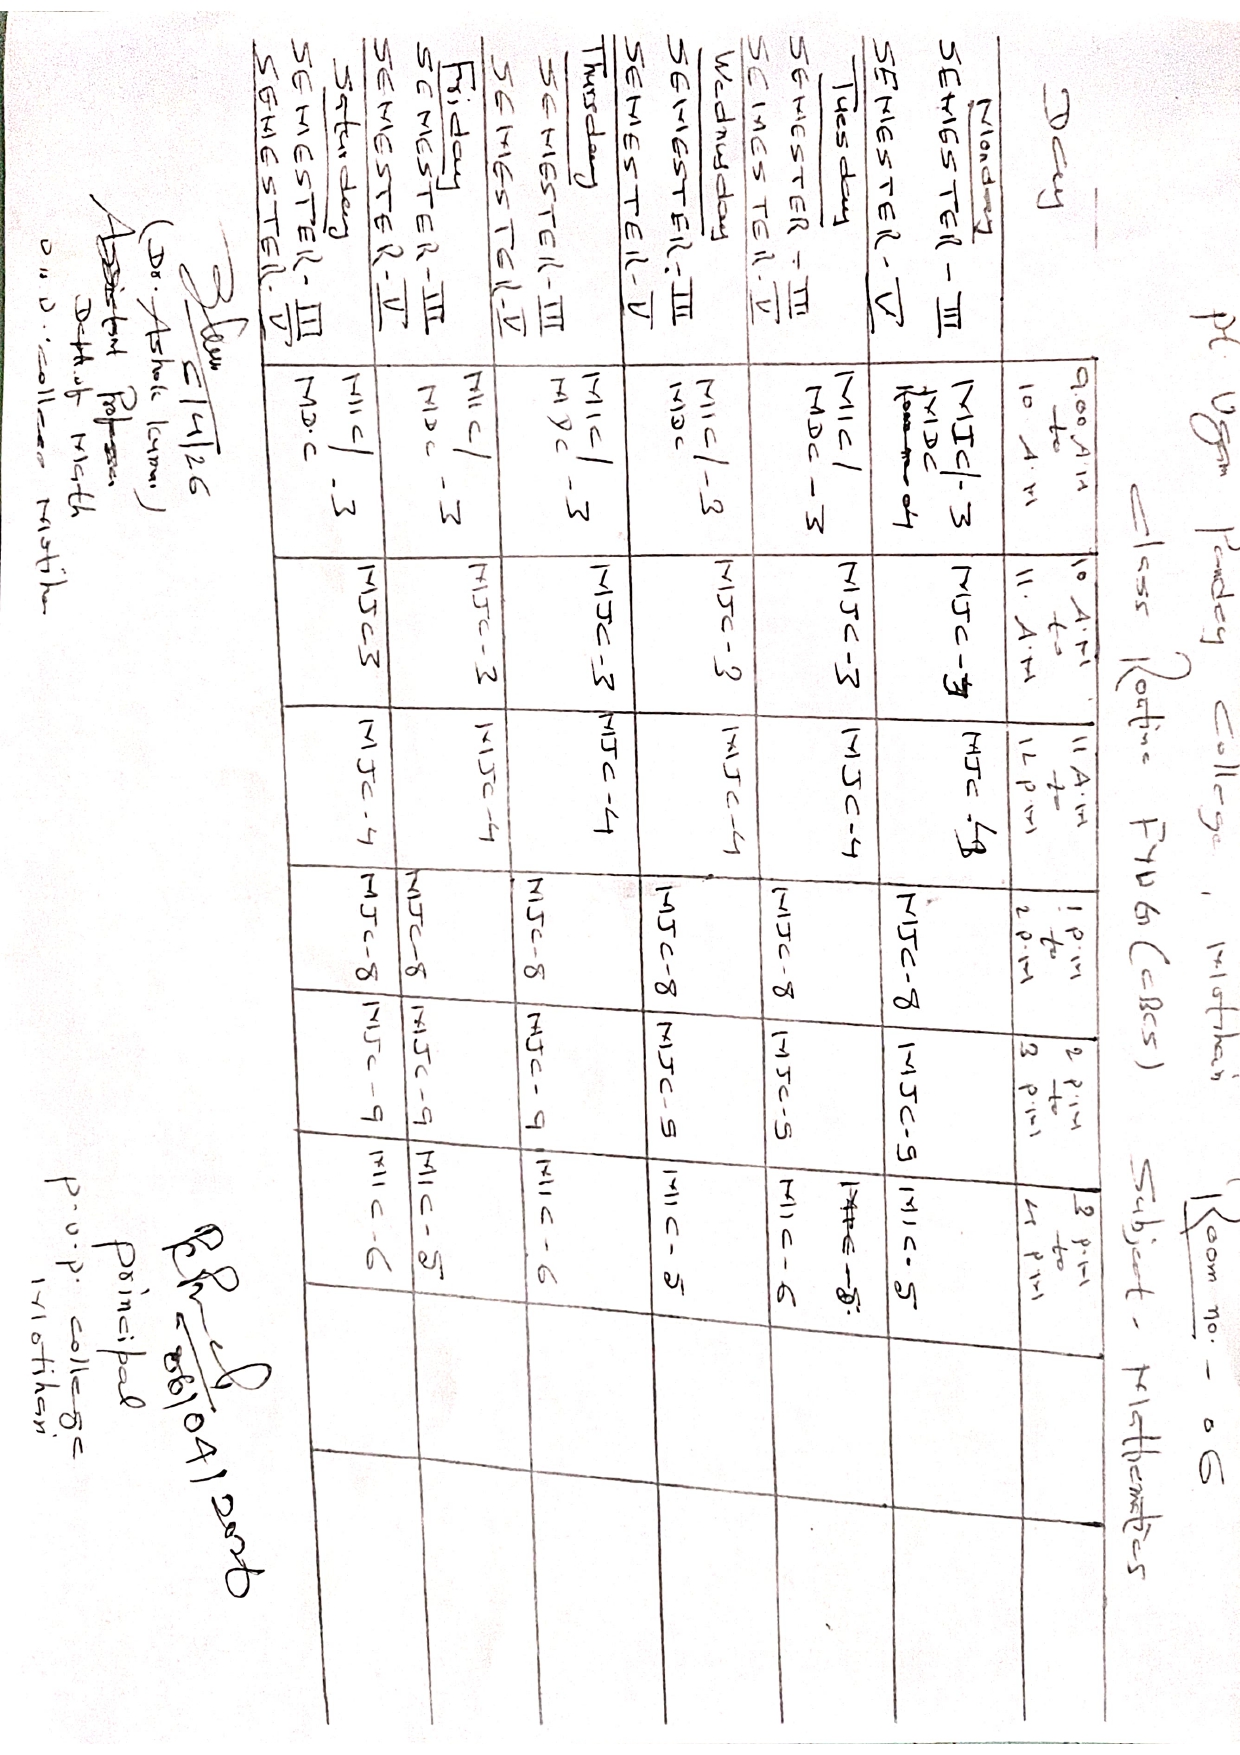 Pt. Ugam Pandey College, Motihari Room no. - 06
Class Routine FYUG (CBCS) Subject - Mathematics
Day 9.00 A.M to 10 A.M 10 A.M to 11 A.M 11 A.M to 12 P.M 1 P.M to 2 P.M 2 P.M to 3 P.M 3 P.M to 4 P.M
Monday
SEMESTER - III MJC/-3 MDC MJC-3 MJC-4
SEMESTER - V MJC-8 MJC-9 MIC-5
Tuesday
SEMESTER - III MIC/ MDC-3 MJC-3 MJC-4 MIC-5
SEMESTER - V MJC-8 MJC-9 MIC-6
Wednusday
SEMESTER - III MIC/-3 MDC MJC-3 MJC-4
SEMESTER - V MJC-8 MJC-9 MIC-5
Thursday
SEMESTER - III MIC/ MDC-3 MJC-3 MJC-4
SEMESTER - V MJC-8 MJC-9 MIC-6
Friday
SEMESTER - III MIC/ MDC-3 MJC-3 MJC-4
SEMESTER - V MJC-8 MJC-9 MIC-5
Saturday
SEMESTER - III MIC/-3 MDC MJC-3 MJC-4
SEMESTER - V MJC-8 MJC-9 MIC-6
(Dr. Ashok Kumar)
Assistant Professor
Deptt. of Math
College Motihari
06/04/2026
Principal
P.U.P. College
Motihari